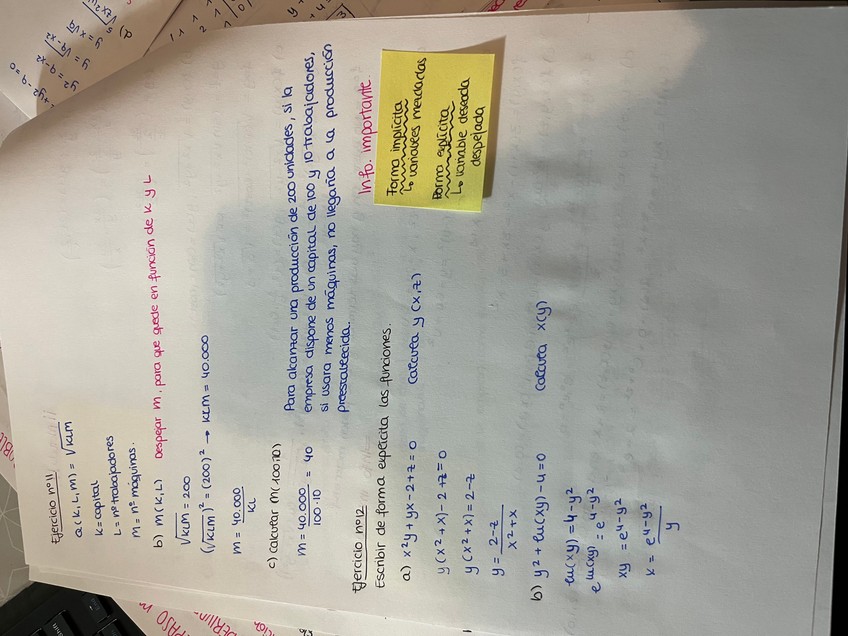 Ejercicio nº11
Q(K, L, M) = √KLM
K = capital
L = nº trabajadores
M = nº máquinas.
b) M(K, L) Despejar M, para que quede en función de K y L
√KLM = 200
(√KLM)² = (200)² → KLM = 40.000
M = 40.000 / KL
c) Calcular M(100,10)
M = 40.000 / 100·10 = 40
Para alcanzar una producción de 200 unidades, si la
empresa dispone de un capital de 100 y 10 trabajadores,
si usara menos máquinas, no llegaría a la producción
preestablecida.
Ejercicio nº12
Info. importante.
Escribir de forma explícita las funciones.
Forma implícita
↳ variables mezcladas
Forma explícita
↳ variable deseada
despejada
a) x²y + yx - 2 + z = 0 Calcula y(x,z)
y(x² + x) - 2 + z = 0
y(x² + x) = 2 - z
y = 2-z / x²+x
b) y² + ln(xy) - 4 = 0 Calcula x(y)
ln(xy) = 4 - y²
e^ln(xy) = e^4-y²
xy = e^4-y²
x = e^4-y² / y
+y²-9=0
y² = 9-x²
y = √9-x²